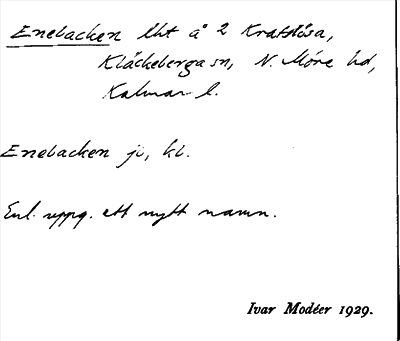 Enebacken lht å 2 Kratslösa,
Kläckeberga sn, N. Möre hd,
Kalmar l.
Enebacken ju, kb.
Enl. uppg. ett nytt namn.
Ivar Modéer 1929.